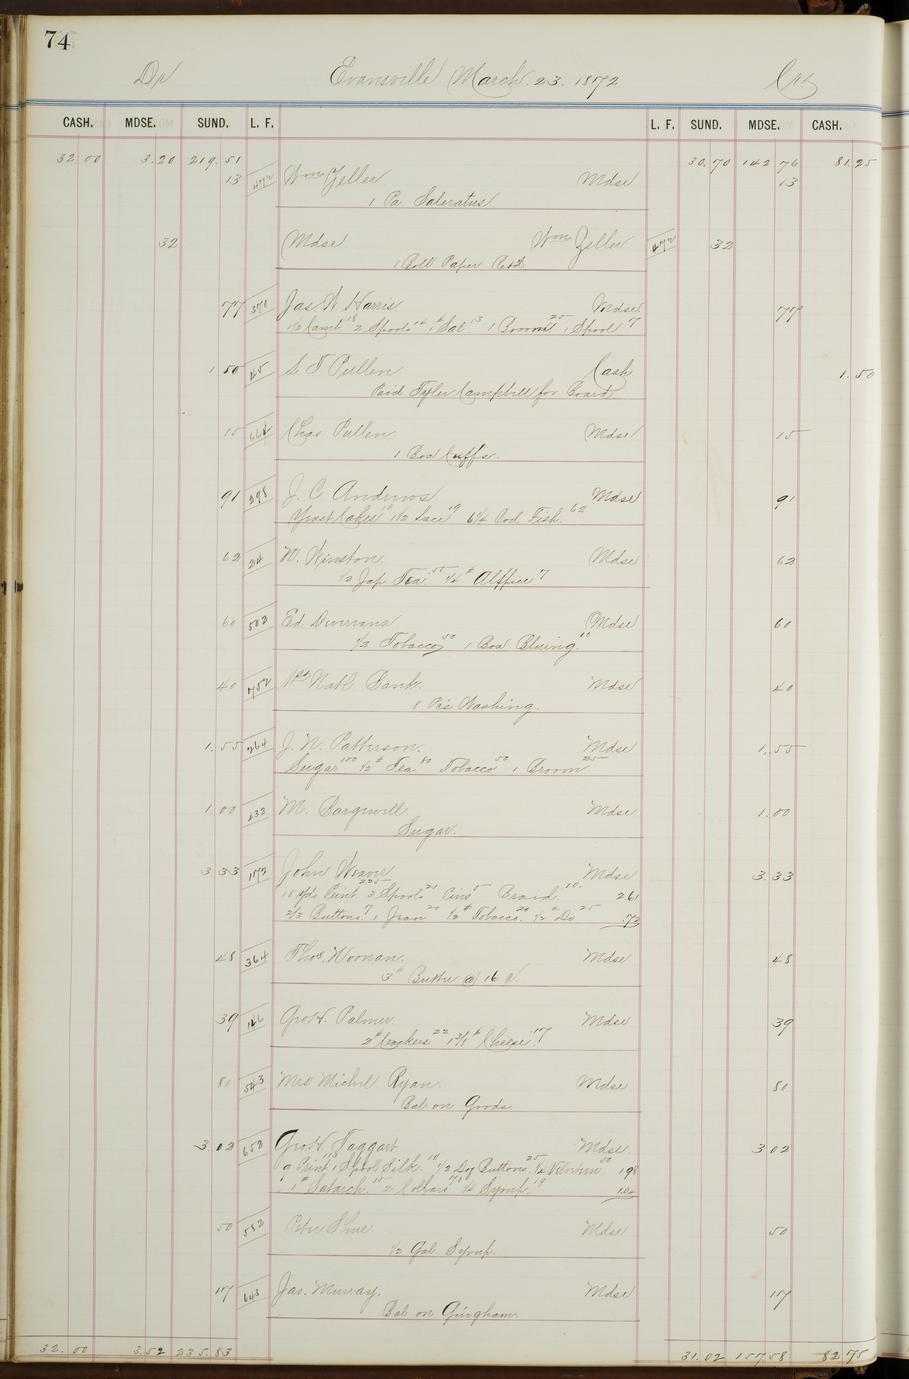 74
Dr Evansville March. 23. 1872 Cr
CASH. MDSE. SUND. L. F. L. F. SUND. MDSE. CASH.
32 00 3.20 219.51 30.70 142 76 81.25
13 472 Wm Zeller Mdse 13
1 Pa Saleratus
32 Mdse Wm Zeller 472 32
1 Boll Paper Retd
77 370 Jas. W Harris Mdse 77
1/2 18 2 Spools 14 1 # Sal 13 1 25 1 Spool 7
1 50 45 S T Pullen Cash 1.50
Paid Tyler Campbell for Board
15 664 Chas Pullen Mdse 15
1 Box Cuffs.
91 298 J. C Andrews Mdse 91
Yeast Cakes 10 1 1/2 Lace 19 6 1/4 Cod Fish. 62
62 24 W. Winston Mdse 62
1/2 Jap Tea 55 1/4 # Allspice 7
60 502 Ed. Mdse 60
1/2 Tobacco 50 1 Box Bluing. 10
40 752 1st Natl. Bank. Mdse 40
8 Pcs Washing.
1.55 264 J. N. Patterson. Mdse 1.55
Sugar 100 1/2 # Tea 80 Tobacco 50 1 Broom 25
1.00 232 M. Mdse 1.00
Sugar.
3.33 172 John Weaver Mdse 3.33
18 Yds Print 225 3 Spools 21 Pins 5 Braid. 10. 261
2/3 Buttons 7 1 20 1/2 # Tobacco. 20 1/2 # Do 25 .72
48 364 Thos. Noonan. Mdse 48
3 # Butter @ 16 c.
39 146 Geo. H. Palmer. Mdse 39
2 # Crackers 22 1 3/8 # Cheese. 17
80 543 Mrs Michel Ryan. Mdse 80
Bal on Goods.
3 02 652 Geo. H Taggart Mdse. 3 02
9 Print 113 1 Spool Silk. 10 1/2 Doz Buttons. 25 50 198
1 # Starch. 15 2 Collars 70 1/4 Syrup. 19 1.04
50 582 Peter Mdse 50
1/2 Gal. Syrup.
17 643 Jas. Murray. Mdse 17
Bal on Gingham.
32.00 3.52 235.83 31.02 157 58 82 75